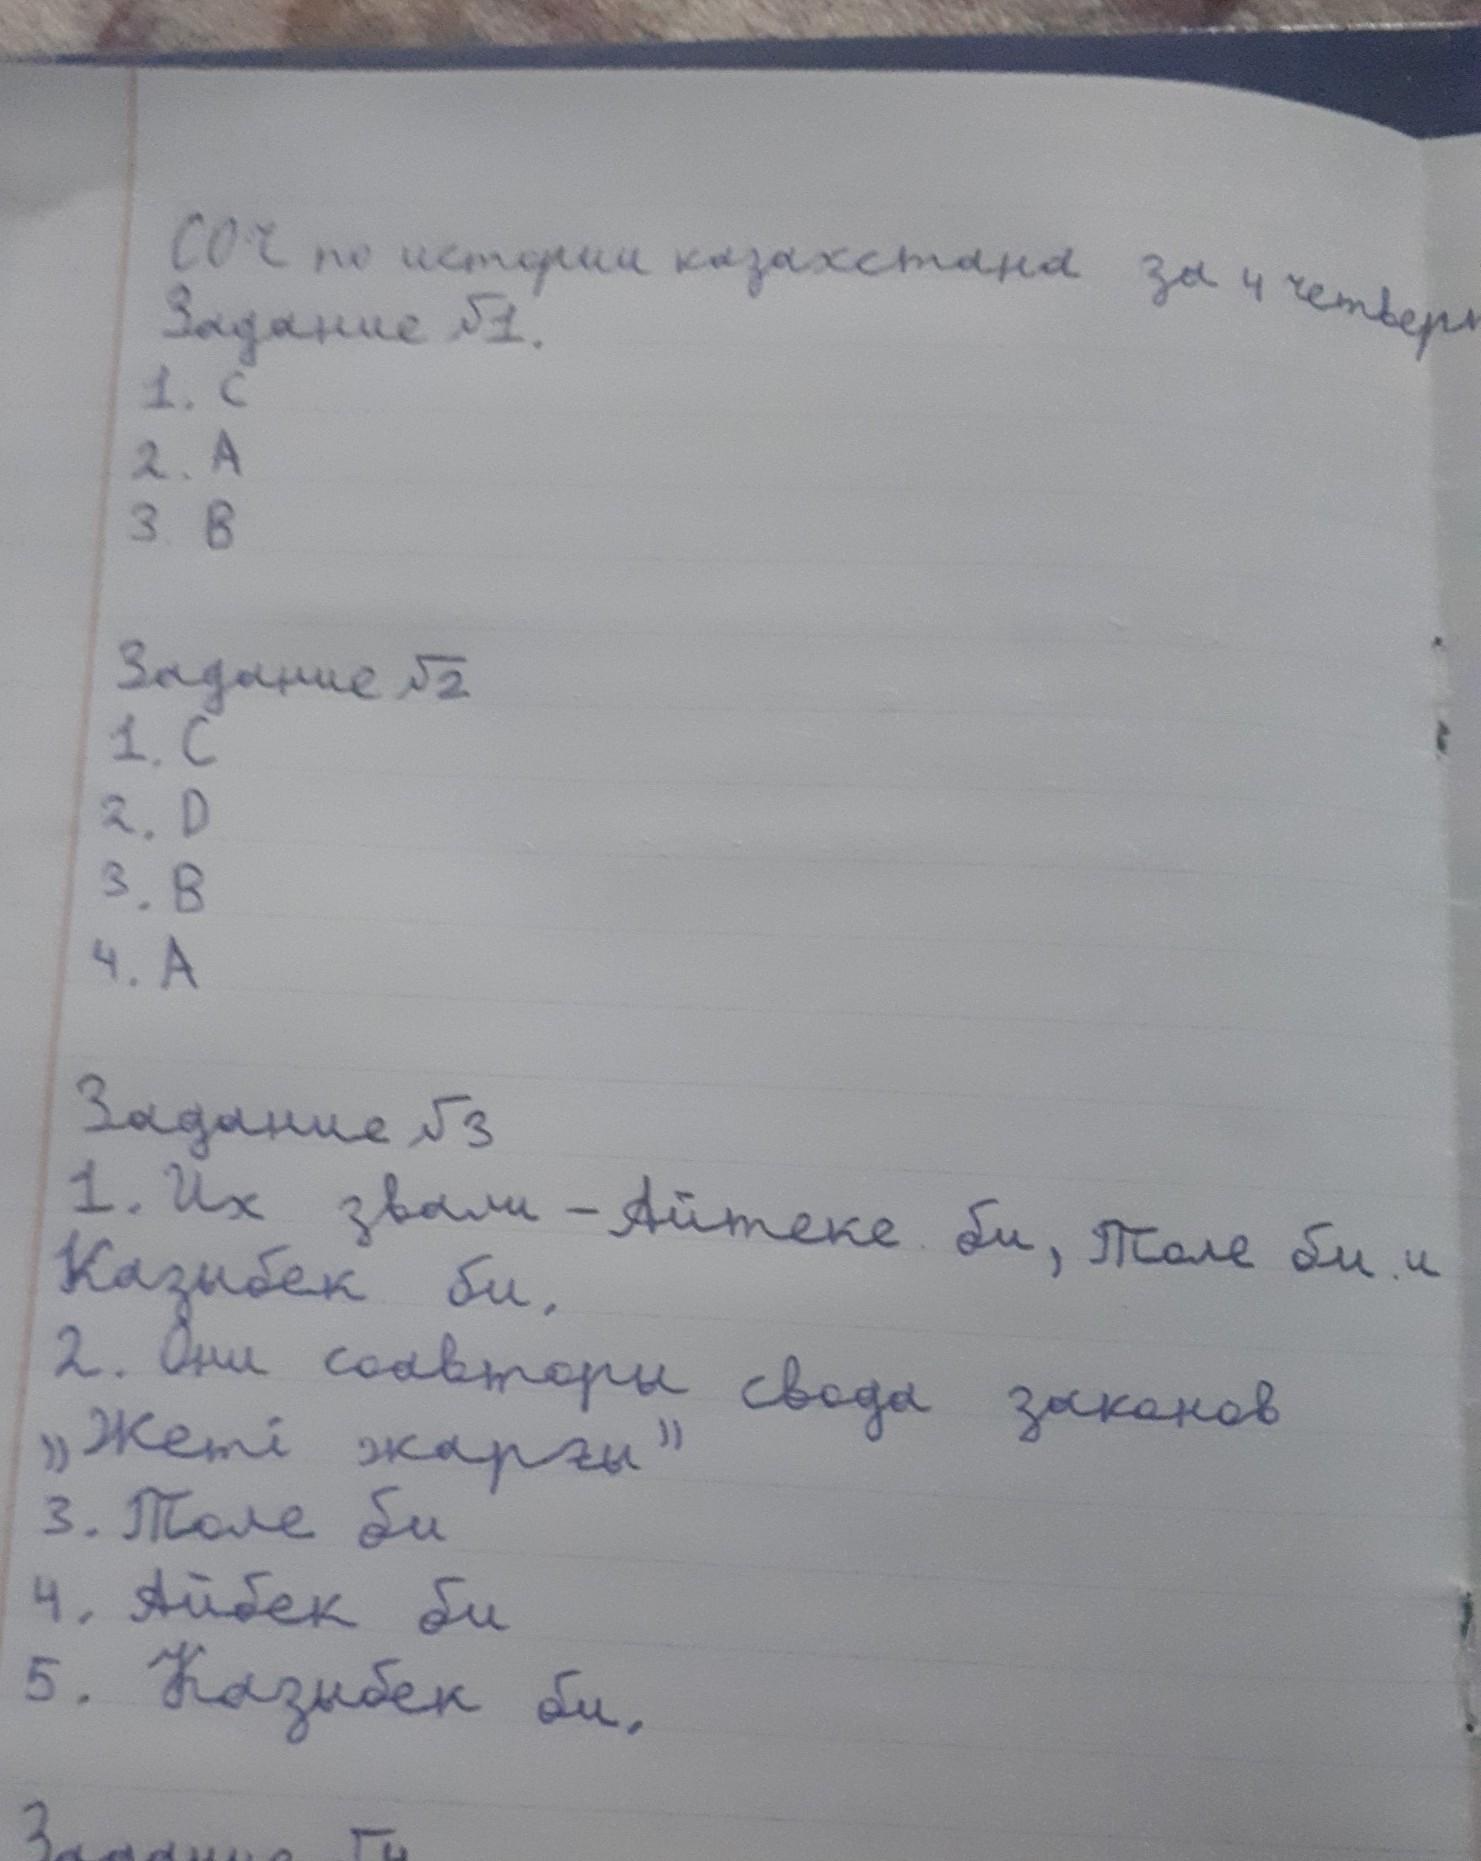 СОЧ по истории казахстана за 4 четверт
Задание №1.
1. С
2. А
3. В
Задание №2
1. С
2. D
3. В
4. А
Задание №3
1. Их звали - Айтеке би, Толе би и
Казыбек би.
2. Они соавторы свода законов
„Жеті жарғы”
3. Толе би
4. Айбек би
5. Казыбек би.
Задание №4